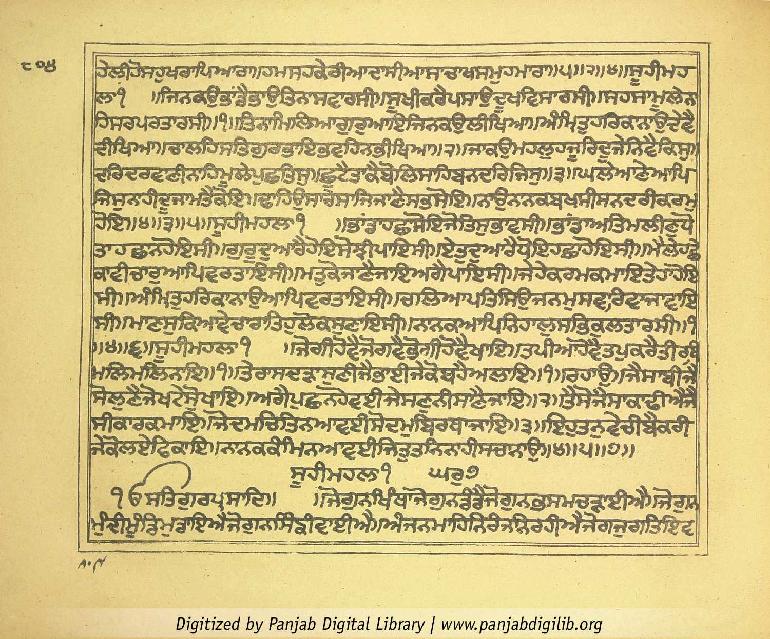 ੮੦੪
ਹੇਲੀਹੋਸਹੁਖਰਾਪਿਆਰਾ॥ਹਮਸਹਕੇਰੀਆਦਾਸੀਆਸਾਚਾਖਸਮੁਹਮਾਰਾ॥੫॥੨॥੪॥ਸੂਹੀਮਹ
ਲਾ੧ ॥ਜਿਨਕਉਭਾਂਡੈਭਾਉਤਿਨਾਸਵਾਰਸੀ॥ਸੂਖੀਕਰੈਪਸਾਉਦੂਖਵਿਸਾਰਸੀ॥ਸਹਸਾਮੂਲੇਨਾ
ਹਿਸਰਪਰਤਾਰਸੀ॥੧॥ਤਿਨਾਮਿਲਿਆਗੁਰੁਆਇਜਿਨਕਉਲੀਖਿਆ॥ਅੰਮ੍ਰਿਤੁਹਰਿਕਾਨਾਉਦੇਵੈ
ਦੀਖਿਆ॥ਚਾਲਹਿਸਤਿਗੁਰਭਾਇਭਵਹਿਨਭੀਖਿਆ॥੨॥ਜਾਕਉਮਹਲੁਹਜੂਰਿਦੂਜੇਨਿਵੈਕਿਸੁ॥
ਦਰਿਦਰਵਾਣੀਨਾਹਿਮੂਲੇਪੁਛਤਿਸੁ॥ਛੁਟੈਤਾਕੈਬੋਲਿਸਾਹਿਬਨਦਰਿਜਿਸੁ॥੩॥ਘਲੇਆਣੇਆਪਿ
ਜਿਸੁਨਾਹੀਦੂਜਾਮਤੈਕੋਇ॥ਢਾਹਿਉਸਾਰੇਸਾਜਿਜਾਣੈਸਭਸੋਇ॥ਨਾਉਨਾਨਕਬਖਸੀਸਨਦਰੀਕਰਮੁ
ਹੋਇ॥੪॥੩॥੫॥ਸੂਹੀਮਹਲਾ੧ ॥ਭਾਂਡਾਹਛਾਸੋਇਜੋਤਿਸੁਭਾਵਸੀ॥ਭਾਂਡਾਅਤਿਮਲੀਣੁਧੋ
ਤਾਹਛਾਨਹੋਇਸੀ॥ਗੁਰੂਦੁਆਰੈਹੋਇਸੋਝੀਪਾਇਸੀ॥ਏਤੁਦੁਆਰੈਧੋਇਹਛਾਹੋਇਸੀ॥ਮੈਲੇਹਛੇ
ਕਾਵੀਚਾਰੁਆਪਿਵਰਤਾਇਸੀ॥ਮਤੁਕੋਜਾਣੈਜਾਇਅਗੈਪਾਇਸੀ॥ਜੇਹੇਕਰਮਕਮਾਇਤੇਹਾਹੋਇ
ਸੀ॥ਅੰਮ੍ਰਿਤੁਹਰਿਕਾਨਾਉਆਪਿਵਰਤਾਇਸੀ॥ਚਲਿਆਪਤਿਸਿਉਜਨਮੁਸਵਾਰਿਵਾਜਾਵਾਇ
ਸੀ॥ਮਾਣਸੁਕਿਆਵੇਚਾਰਾਤਿਹੁਲੋਕਸੁਣਾਇਸੀ॥ਨਾਨਕਆਪਿਨਿਹਾਲਸਭਿਕੁਲਤਾਰਸੀ॥੧
॥੪॥੬॥ਸੂਹੀਮਹਲਾ੧ ॥ਜੋਗੀਹੋਵੈਜੋਗਵੈਭੋਗੀਹੋਵੈਖਾਇ॥ਤਪੀਆਹੋਵੈਤਪੁਕਰੇਤੀਰਥਿ
ਮਲਿਮਲਿਨਾਇ॥੧॥ਤੇਰਾਸਦੜਾਸੁਣੀਜੈਭਾਈਜੇਕੋਬਹੈਅਲਾਇ॥੧॥ਰਹਾਉ॥ਜੈਸਾਬੀਜੈ
ਸੋਲੁਣੈਜੋਖਟੇਸੋੁਖਾਇ॥ਅਗੈਪੁਛਨਹੋਵਈਜੇਸਣੁਨੀਸਾਣੈਜਾਇ॥੨॥ਤੈਸੋਜੈਸਾਕਾਢੀਐਜੈ
ਸੀਕਾਰਕਮਾਇ॥ਜੋਦਮੁਚਿਤਿਨਆਵਈਸੋਦਮੁਬਿਰਥਾਜਾਇ॥੩॥ਇਹੁਤਨੁਵੇਚੀਬੈਕਰੀ
ਜੇਕੋਲਏਵਿਕਾਇ॥ਨਾਨਕਕੰਮਿਨਆਵਈਜਿਤੁਤਨਿਨਾਹੀਸਚਾਨਾਉ॥੪॥੫॥੭॥
ਸੂਹੀਮਹਲਾ੧ ਘਰੁ੭
੧ਓਸਤਿਗੁਰਪ੍ਰਸਾਦਿ॥ ॥ਜੋਗੁਨਖਿੰਥਾਜੋਗੁਨਡੰਡੈਜੋਗੁਨਭਸਮਚੜਾਈਐ॥ਜੋਗੁਨ
ਮੁੰਦੀਮੂੰਡਿਮੁਡਾਇਐਜੋਗੁਨਸਿੰਙੀਵਾਈਐ॥ਅੰਜਨਮਾਹਿਨਿਰੰਜਨਿਰਹੀਐਜੋਗਜੁਗਤਿਇਵ
Digitized by Panjab Digital Library | www.panjabdigilib.org